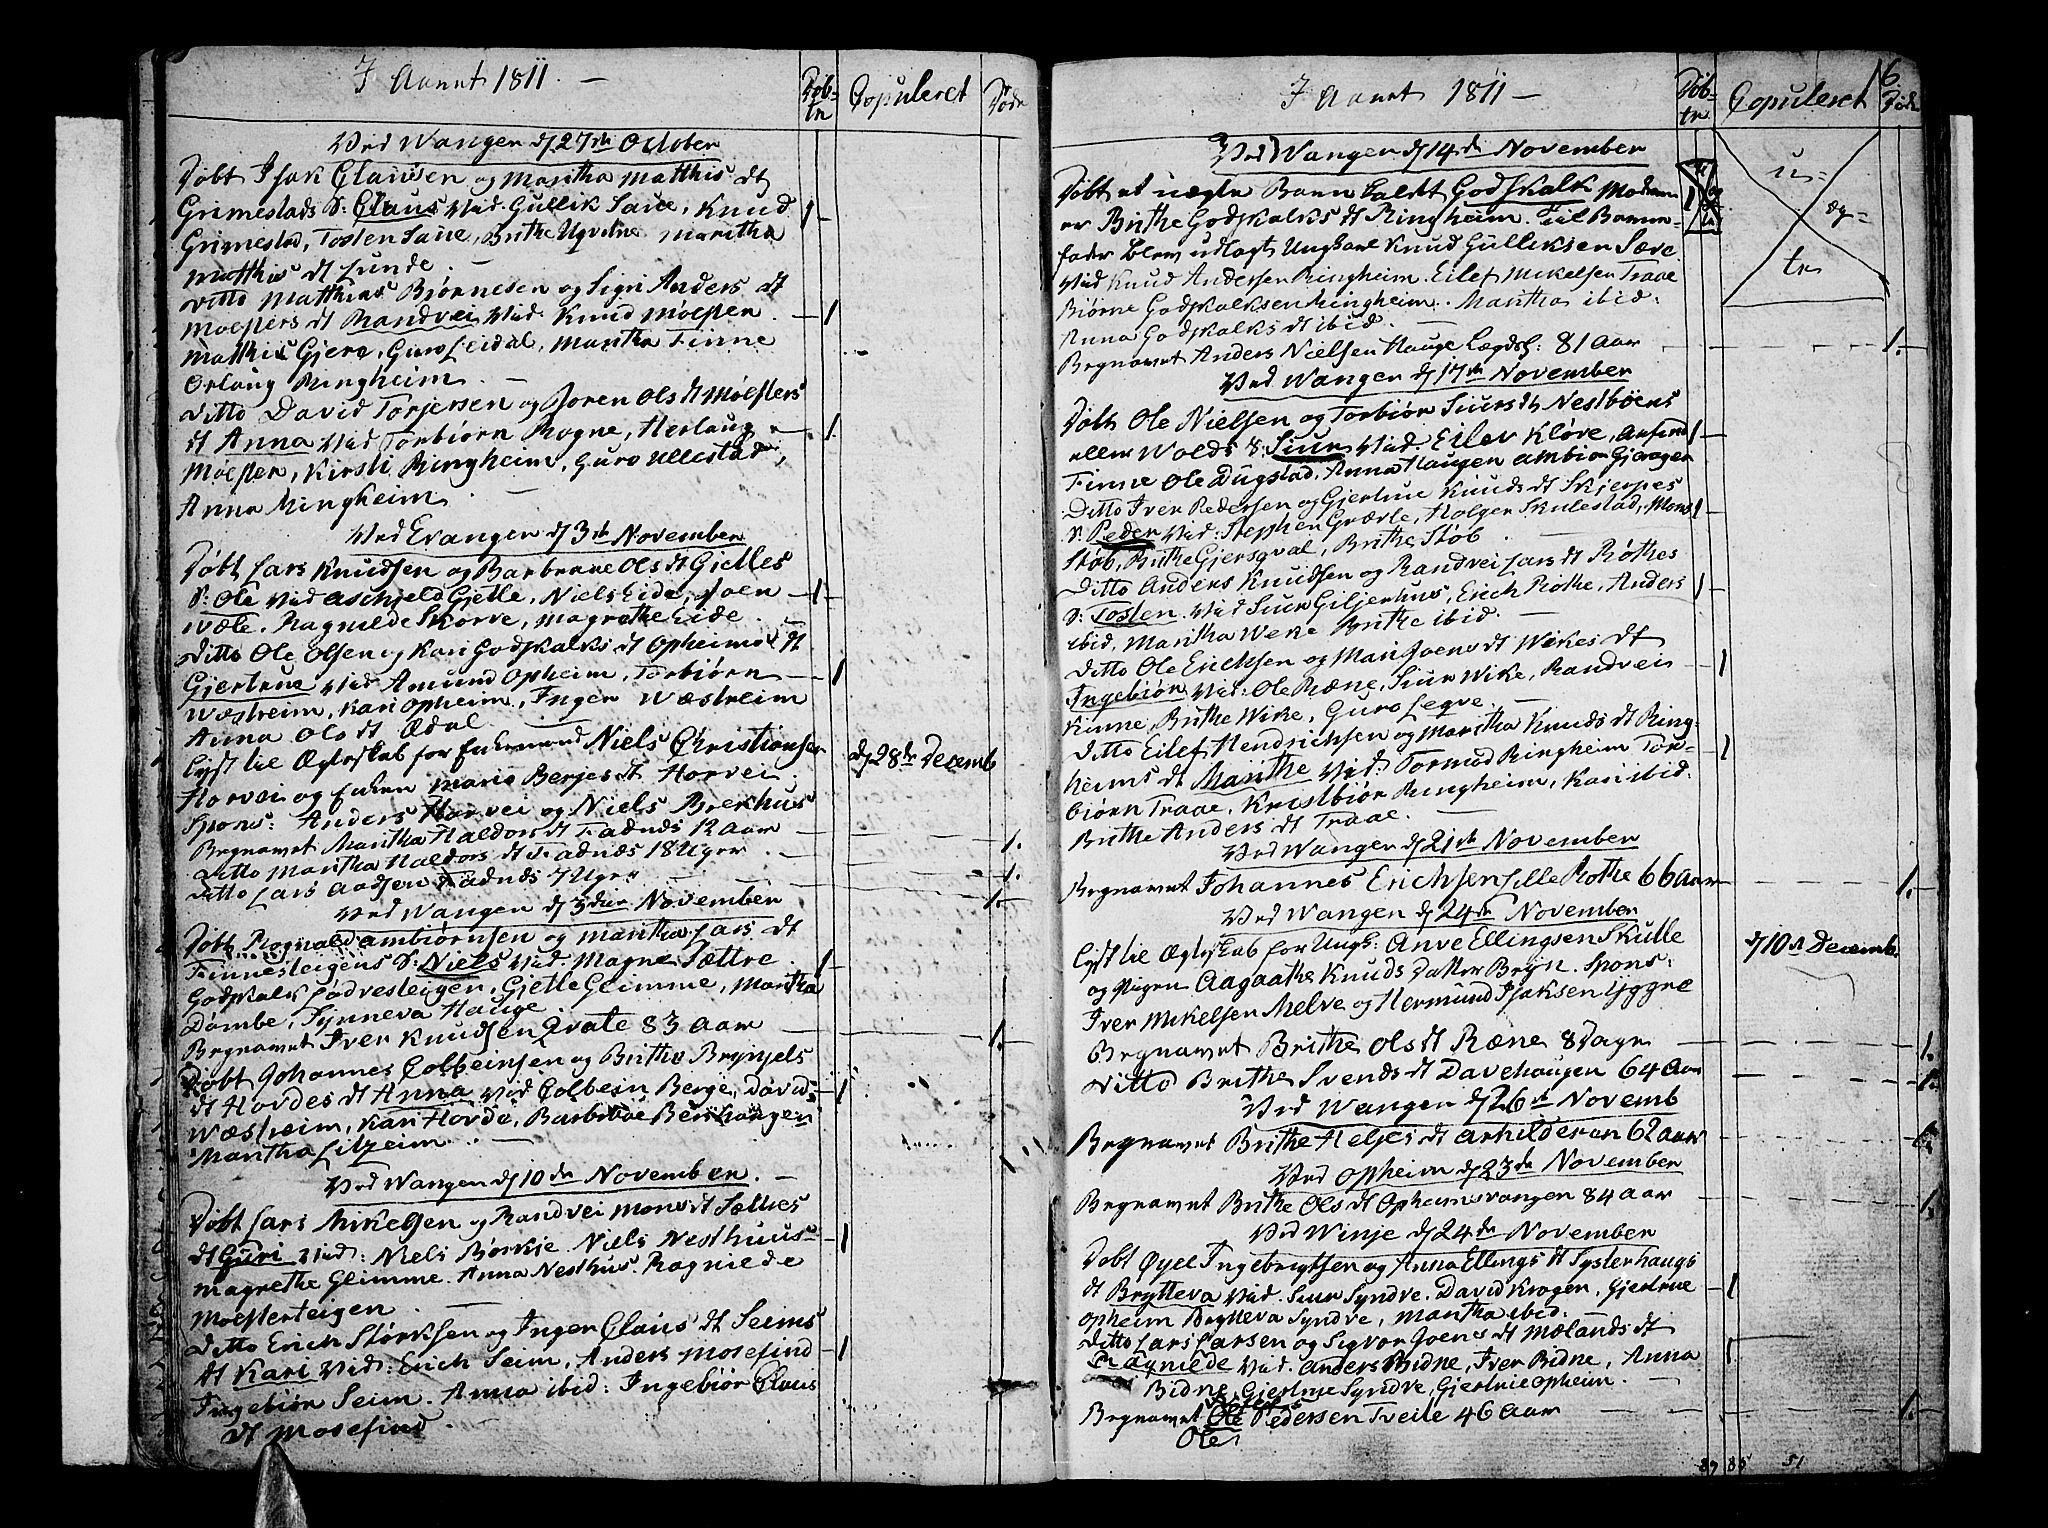 I Aaret 1811 –
Døb-
te
Copuleret
Døde
Ved Wangen d 27de October
Døbt Isak Clausen og Martha Matthis dt
Grimestads S: Claus Vid. Gullik Saue, Knud
Grimestad, Tosten Saue, Brithe Ugvitne Maritha
Matthis dt Lunde.
Ditto Matthias Bjørnesen og Sigri Anders dt
Moesters dt Randvei Vid. Knud Møester.
Matthis Gjera, Guro Leidal, Martha Finne
Orlaug Ringheim.
Ditto David Torjersen og Joren Ols dt Moesters
dt Anna Vid Torbiørn Rogne, Herlaug
Moester, Kirsti Ringheim, Guro Ullestad,
Anna Ringheim
Ved Evangen d 3de November
Døbt Lars Knudsen og Barbroe Ols dt Gielles
S: Ole Vid Aschield Gjelle, Niels Eide, Joen
Wæle, Ragnilde Skorve, Magrethe Eide.
Ditto Ole Olsen og Kari Godskalks dt Opheims dt
Gjertrue Vid Amund Opheim, Torbiørn
Wæstreim, Kari Opheim, Inger Wæstreim
Anna Ols dt Ædal
Lyst til Ægteskab for Enkemand Niels Christiansen
Horvei og Enken Mario Berjes dt Horvei
d 28de Decemb
Spons: Anders Horvei og Niels Boerhus
Begravet Maritha Haldors dt Fadnæs 12 Aar
Ditto Maritha Haldors dt Fadnæs 18 Uger
Ditto Lars Aadsen Fadnæs 7 Uger
Ved Wangen d 3die November
Døbt Rognald Ambiørnsen og Maritha Lars dt
Finnesteigens S: Niels Vid. Magne Sættre
Godskalk Lødvesteigen, Gjelle Glimme, Maritha
Dømbe, Synneva Hauge
Begravet Iver Knudsen Qvale 83 Aar
Døbt Johannes Colbeinsen og Brithe Brynjels
dt Hovdes dt Anna Vid Colbein Berge, David
Wæstreim, Kari Hovde, Barbroe Berhaugen
Maritha Litzeim
Ved Wangen d 10de November
Døbt Lars Mikelsen og Randvei Mons dt Sælles
dt Guri Vid: Niels Biørkje Niels Nesthuus
Magrethe Glimme. Anna Nesthus. Ragniede
Moesterteigen.
Ditto Erich Størksen og Inger Claus dt Seims
dt Kari Vid: Erich Seim, Anders Mosefind
Ingebiør Seim. Anna ibid: Ingebiør Claus
dt Mosefind
I Aaret 1811 –
Døb-
te
Copuleret
16
Døde
Ved Wangen d 14de November
Døbt et uægte Barn kaldt Godskalk Moderen
er Brithe Godskalks dt Ringheim. Til Barne-
fader blev udlagt Ungkarl Knud Gulliksen Sæve
u-
æg-
te
Vid Knud Andersen Ringheim. Eilef Mikelsen Traae
Biørne Godskalksen Ringheim. Maritha ibid:
Anna Godskalks dt ibid.
Begravet Anders Nielsen Hauge Lægdsl: 81 Aar
Ved Wangen d 17de November
Døbt Ole Nielsen og Torbiør Siurs dt Nestbøens
eller Wolds S: Siur Vid. Eilev Kløve, Arfind
Finne Ole Dugstad, Anna Haugen Ambior Gjerager
Ditto Iver Pedersen og Gjertrue Knuds dt Skjerpes
S: Peder Vid: Stephen Grævle, Holger Skulestad, Mons
Støb, Brithe Gjersqval, Brithe Støb.
Ditto Anders Knudsen og Randvei Lars dt Rothes
S: Tosten. Vid Siur Giljerhus, Erich Rothe, Anders
ibid, Maritha Weke Brithe ibid.
Ditto Ole Erichsen og Mari Joens dt Wækes dt
Ingebiør Vid: Ole Ræne, Siur Wike, Randvei
Kinne, Brithe Wike, Guro Leqve.
Ditto Eilef Hendrichsen og Maritha Knuds dt Ring-
heims dt Marithe Vid: Tormod Ringheim Tor-
biørn Traae, Kristbiør Ringheim, Kari ibid.
Brithe Anders dt Traae.
Ved Wangen d 21de November
Begravet Johannes Erichsen Lille Rothe 66 Aar
Ved Wangen d 24de November
Lyst til Ægteskab for Ungk: Anve Ellingsen Skulle
og Pigen Aagaathe Knuds Datter Bryn. Spons:
d 10de Decemb.
Iver Mikelsen Melve og Hermund Isaksen Yggre
Begravet Brithe Ols dt Ræne 8 Dage
Ditto Brithe Svends dt Davehaugen 64 Aar
Ved Wangen d 26de Novemb
Begravet Brithe Heljes dt Arhilderen 62 Aar
Ved Opheim d 23de November
Begravet Brithe Ols dt Opheimsvangen 84 Aar
Ved Winje d 24de November
Døbt Øyel Ingebrigtsen og Anna Ellings dt Systerhaugs
dt Brytteva Vid. Siur Syndve. David Krogen, Gjertrue
Opheim Brytteva Syndve, Maritha ibid.
Ditto Lars Larsen og Sigvor Joens dt Mælands dt
Ragniede Vid. Anders Bidne, Iver Bidne, Anna
Bidne, Gjertrue Syndve, Gjertrue Opheim.
Begravet Ole Pedersen Tveite 46 Aar
Ole
89 85 51